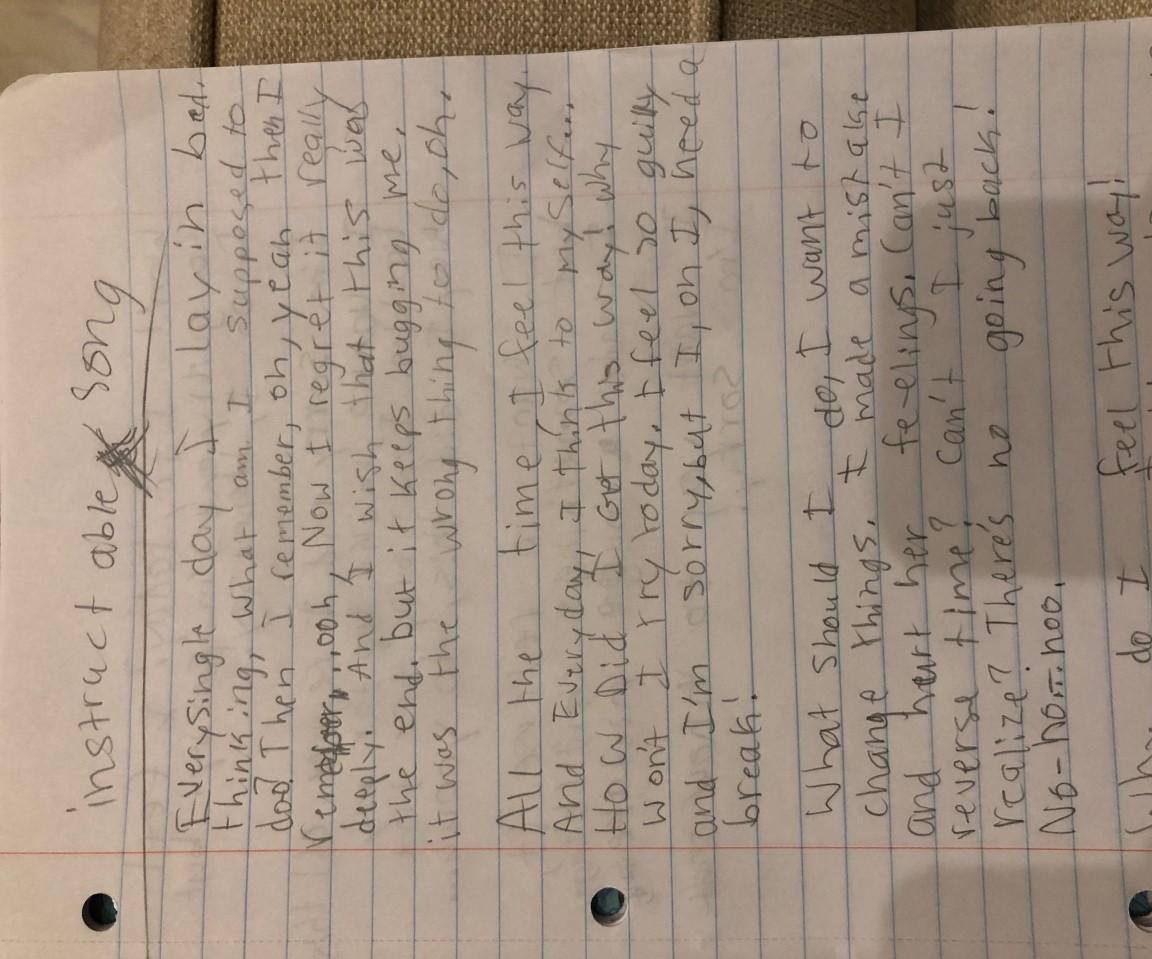 instruct able Song
Every single day I lay in bed.
thinking, what am I supposed to
doo. Then I remember, oh, yeah then I
remember,..ooh, Now I regret it really
deeply. And I wish that this was
the end. but it keeps bugging me.
it was the wrong thing to do, oh.
All the time I feel this way.
And Everyday, I think to myself...
How Did I Get this way! why
won't I try today. I feel so guilty
and I'm sorry, but I, oh I, need a
break!
What should I do, I want to
change things. I made a mistake
and hurt her fe-elings. Can't I
reverse time? can't I just
realize? There's no going back!
No-no...noo.
Why do I feel this way!